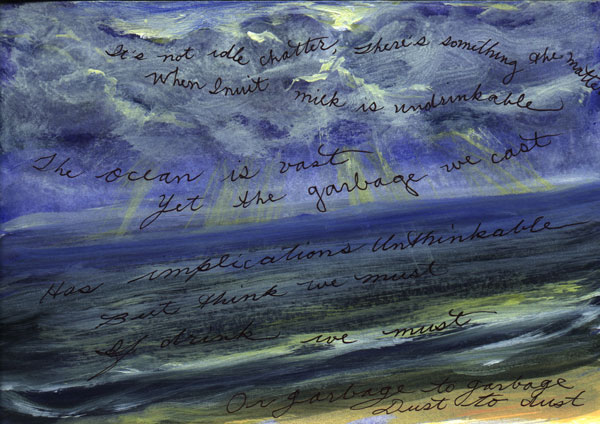 It's not idle chatter, There's something the matter
When Inuit milk is undrinkable
The ocean is vast
Yet the garbage we cast
Has implications Unthinkable
But think we must
If drink we must
Or garbage to garbage
Dust to dust